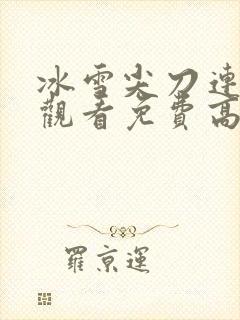 冰雪尖刀連
觀看免費高
羅京運